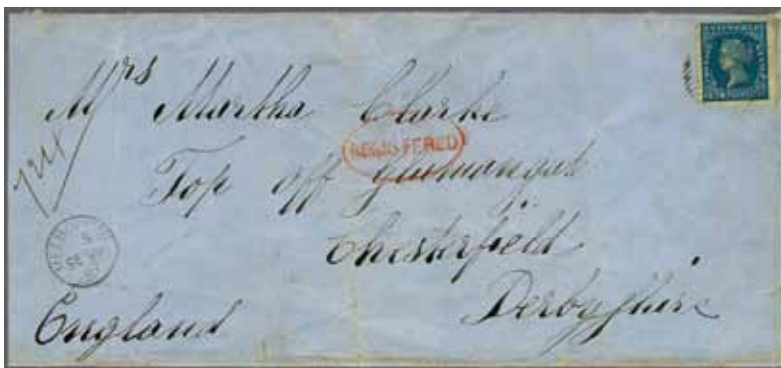 Mrs Martha Clarke
REGISTERED
Top off
Chesterfield
Derbyshire
England